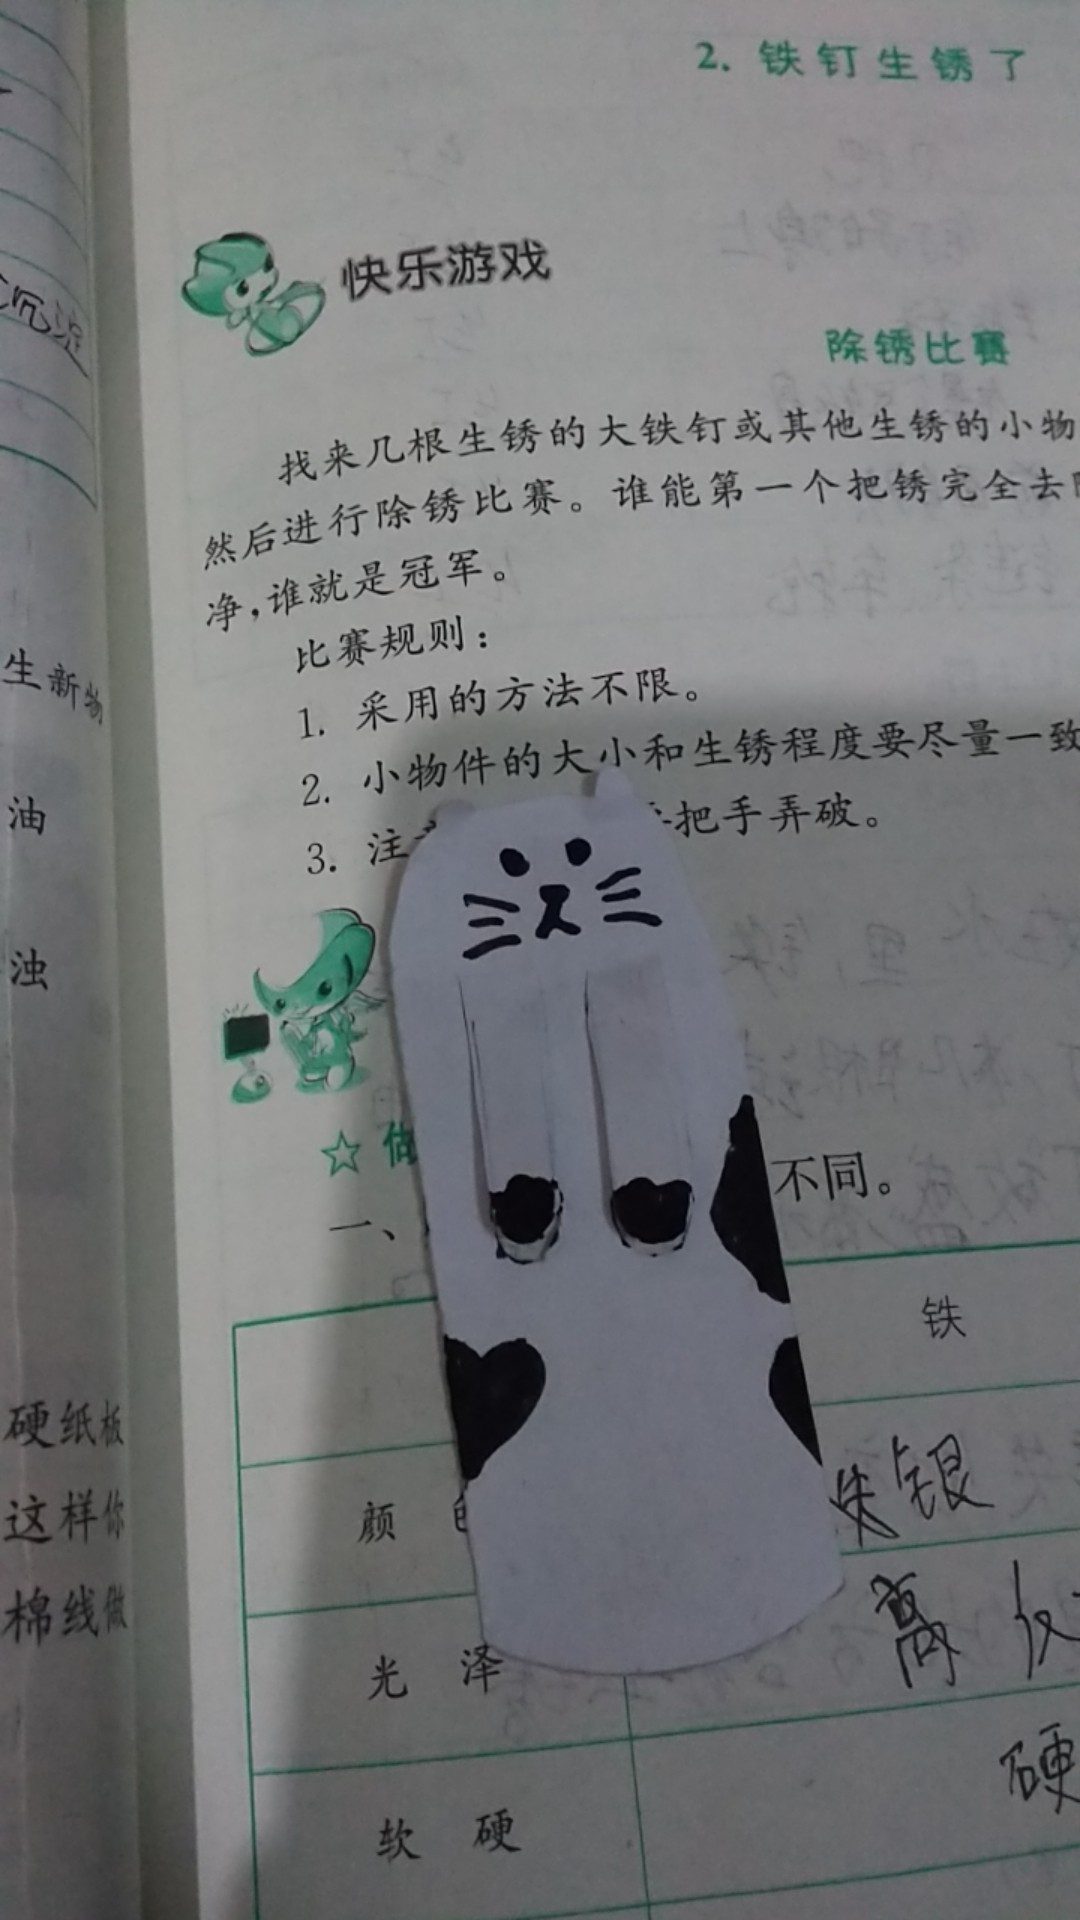 沉淀
生新物
油
浊
硬纸板
这样你
棉线做
2. 铁钉生锈了
快乐游戏
除锈比赛
找来几根生锈的大铁钉或其他生锈的小物
然后进行除锈比赛。谁能第一个把锈完全去
净，谁就是冠军。
比赛规则：
1. 采用的方法不限。
2. 小物件的大小和生锈程度要尽量一致
3. 注 把手弄破。
☆
一、 不同。
铁
颜 银
光 泽
软 硬 硬